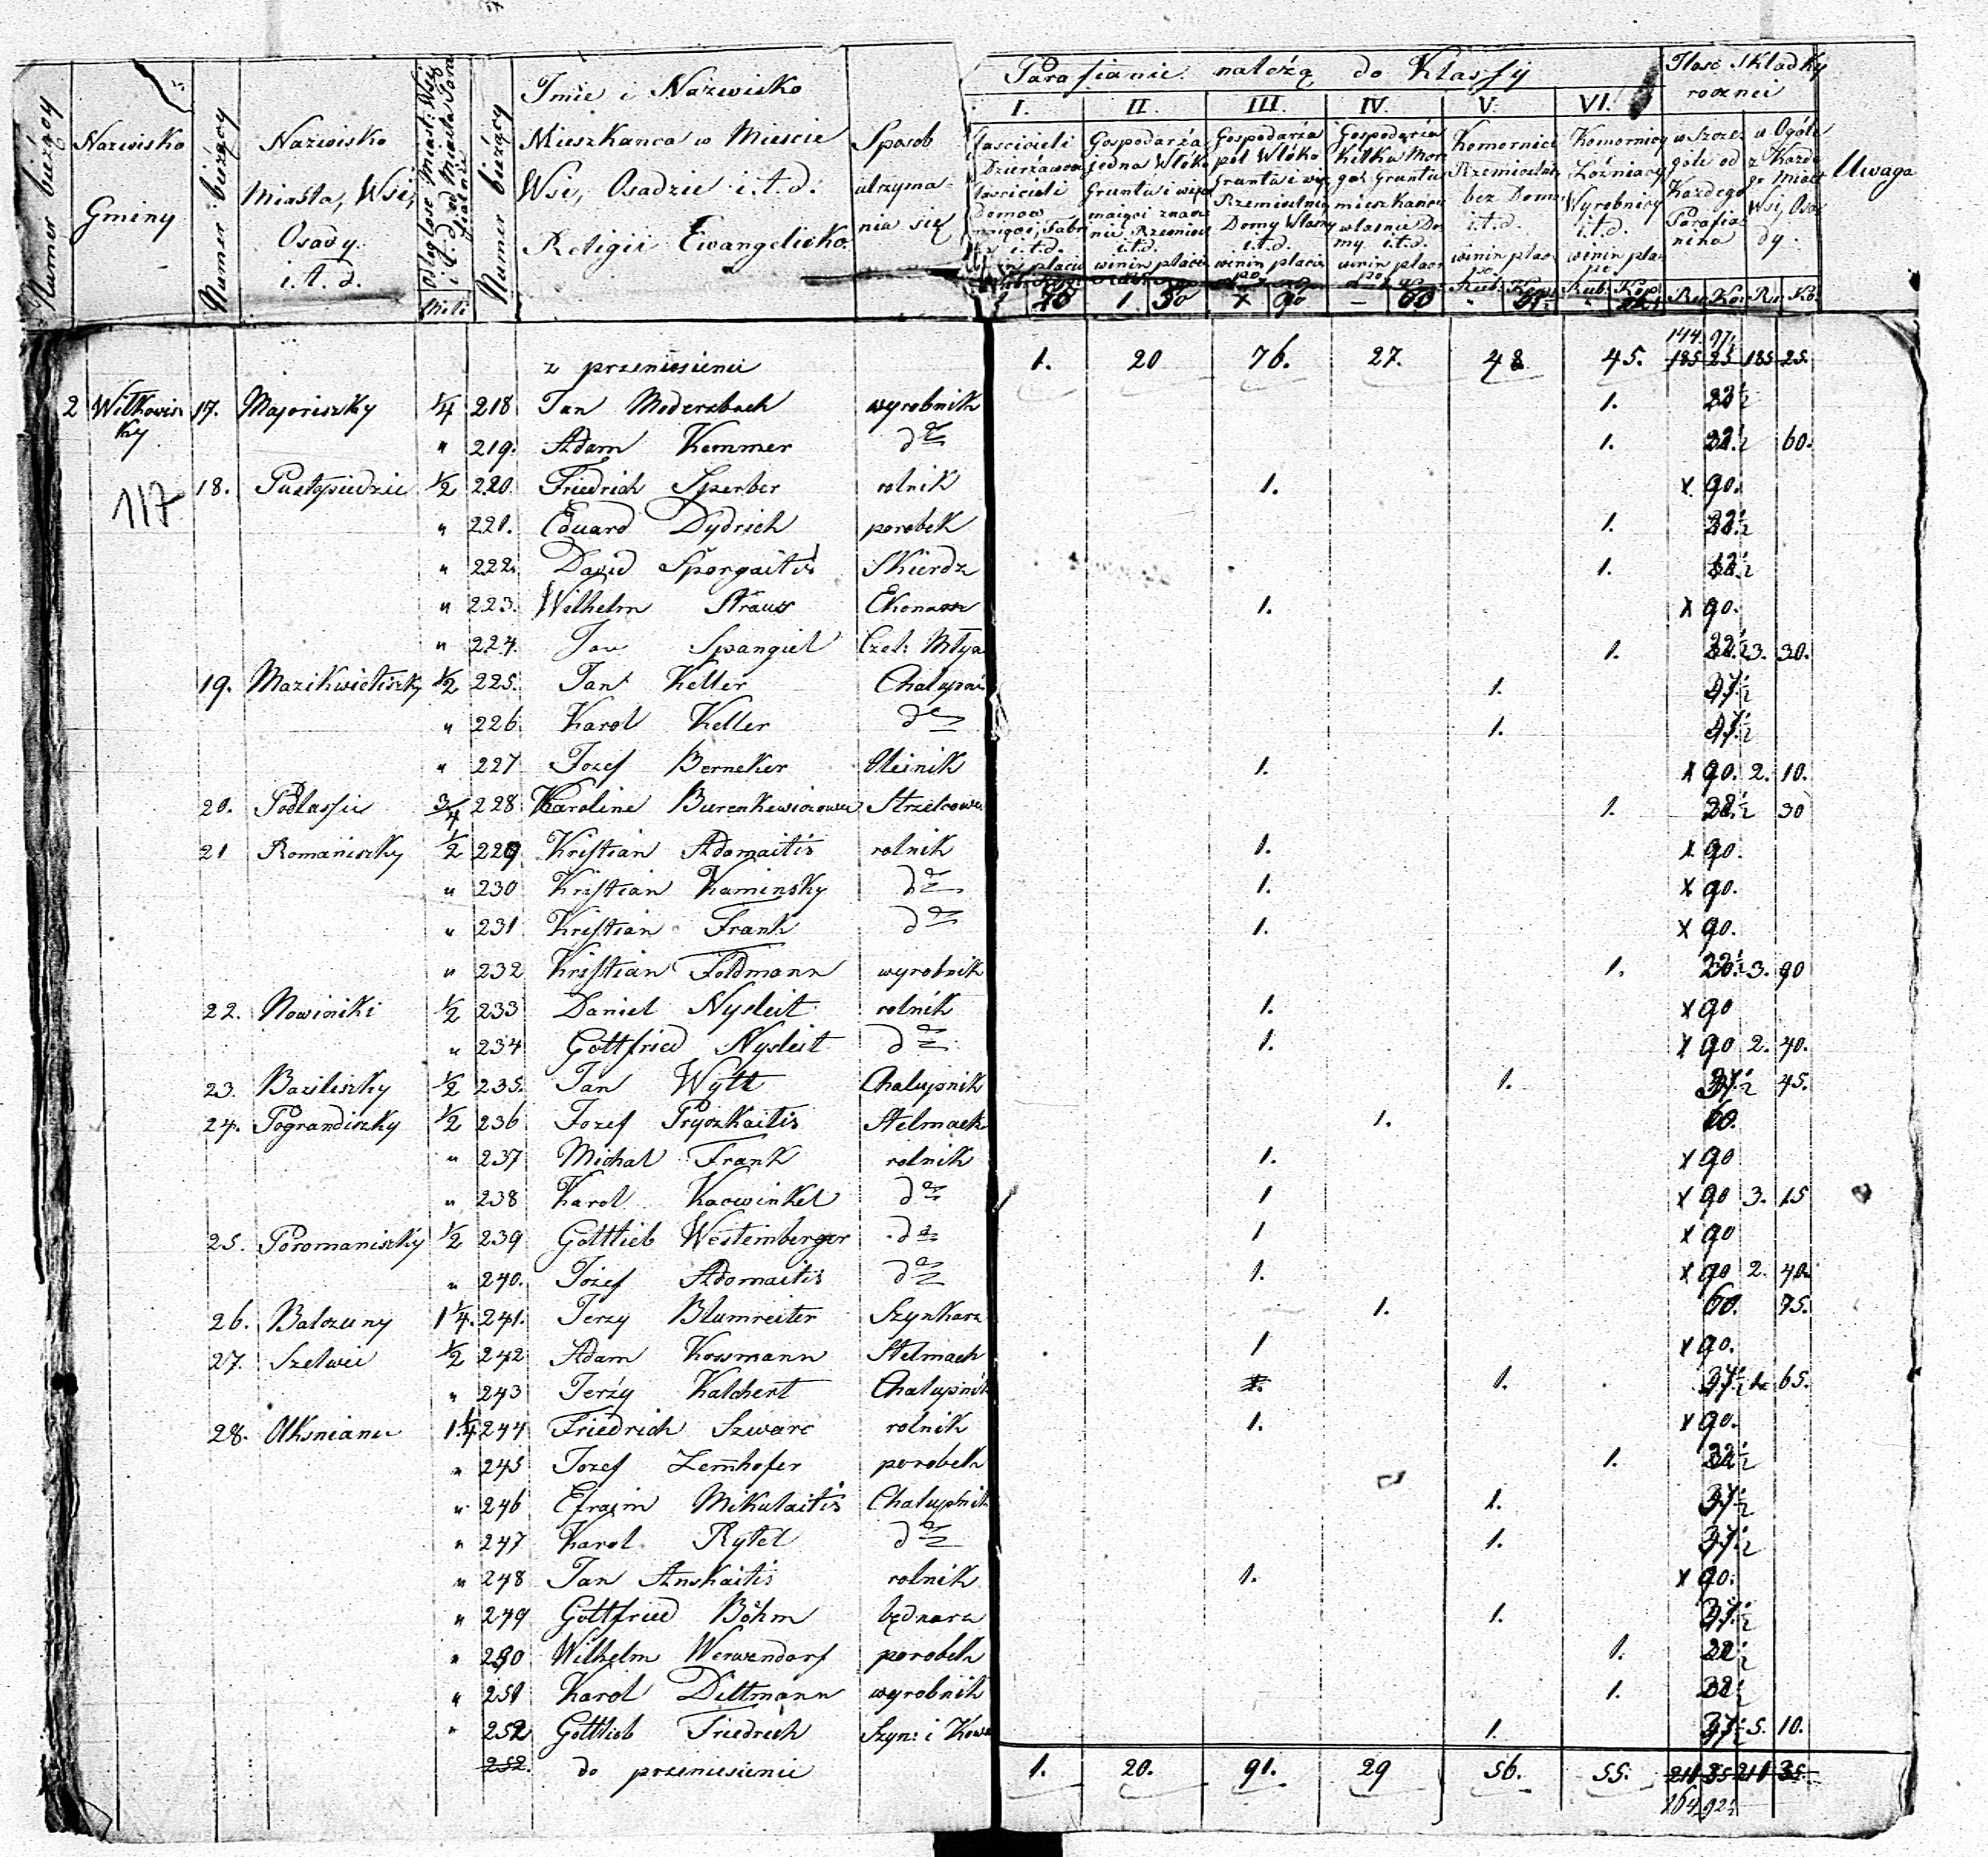 Numer bieżący
Nazwisko Gminy
Numer bieżący
Nazwisko Miasta, Wsi, Osady i.t.d.
Odległość Miast: Wsi i.t.d. od Miasta
Mili
Numer bieżący
Imie i Nazwisko
Mieszkanca w Miescie
Wsi, Osadzie i.t.d.
Religii Ewangelicko.
Sposob utrzymania się
Parafianie należą do Klassy
I. II. III. IV. V. VI.
Gospodarza jedna Włóka Gruntu i.t.d. winin płacić
Gospodarza pół Włóka Gruntu Rzemieślnic Domy Własny i.t.d. winin płacić po
Gospodarza Kilku Morgów Gruntu mieszkańca własnie Domy i.t.d. winin płac po
Komornici Rzemieślni bez Domu i.t.d. winin płac po
Komornicy Loźniacy Wyrobnicy i.t.d. winin pła po
Rub. Kop. Rub. Kop.
Ilosć Składky roczniei
w Szczególe od Każdego Parafianina
w Ogóle z Każdego Miast Wsi, Osady.
Ru. Ko. R. Ko.
Uwaga
z przeniesienia 1. 20 76. 27. 48 45. 144 97 185 25 185 25.
2 Wiłkowisky 17. Majoriszky 1/4 218 Jan Moderzbach wyrobnik 1. 22½
" 219. Adam Kemmer dto 1. 22½ 60.
117
18. Pustopiedzie 1/2 220. Friedrich Sperber rolnik 1. x 90.
" 221. Eduard Dydrich porobek 1. 22½
" 222. David Sporgaitis Skierdz 1. 22½
" 223. Wilhelm Strauss Ekonom 1. x 90.
" 224. Jan Spangiel Czel: Młyn 1. 22½ 3. 30.
19. Mazikwietiszky 1/2 225. Jan Keller Chałupni 1. 37½
" 226 Karol Keller dto 1. 37½
" 227 Jozef Berneker Oleinik 1. x 90. 2. 10.
20. Podlassie 3/4 228 Karoline Burenkewiczowa Strzelcowa 1. 22½ 30
21 Romaniszky 1/2 229 Kristian Adomaitis rolnik 1. x 90.
" 230 Kristian Kaminsky dto 1. x 90.
" 231 Kristian Frank dto 1. x 90.
" 232 Kristian Foldmann wyrobnik 1. 22½ 3. 90
22. Nowiniki 1/2 233 Daniel Nysleit rolnik 1. x 90
" 234 Gottfried Nysleit dto 1. x 90 2. 40.
23. Baziliszky 1/2 235. Jan Wytt Chalupnik 1. 37½ 45.
24. Pograndiszky 1/2 236 Jozef Pryszkaitis Stelmach 1. 60.
" 237 Michal Frank rolnik 1. x 90
" 238 Karol Kaowinkel dto 1 x 90 3. 15
25. Poromaniszky 1/2 239 Gottlieb Westemberger dto 1 x 90
" 240. Józef Adomaitis dto 1. x 90 2. 40
26. Balczuny 1¼. 241. Jerzy Blumreiter Szynkarz 1. 60. 75.
27. Szelwie 1/2 242 Adam Kossmann Stelmach 1 x 90.
" 243 Jerzy Kalchert Chałupnik 1. 1. 37½ 1. 65.
28. Olksniane 1¼ 244 Friedrich Szwarc rolnik 1. x 90.
" 245 Jozef Lemhofer porobek 1. 22½
" 246 Efraim Mikulaitis Chalupnik 1. 37½
" 247 Karol Rytel dto 1. 37½
" 248 Jan Anskaitis rolnik 1. x 90.
" 249 Gottfried Böhm będnarz 1. 37½
" 250 Wilhelm Werwendorf porobek 1. 22½
" 251 Karol Dittmann wyrobnik 1. 22½
" 252 Gottlieb Friedrich Szyn: i Kowa 1. 37½ 5. 10.
252. do przeniesienie 1. 20. 91. 29 56. 55. 211 35 211 35.
164 92½